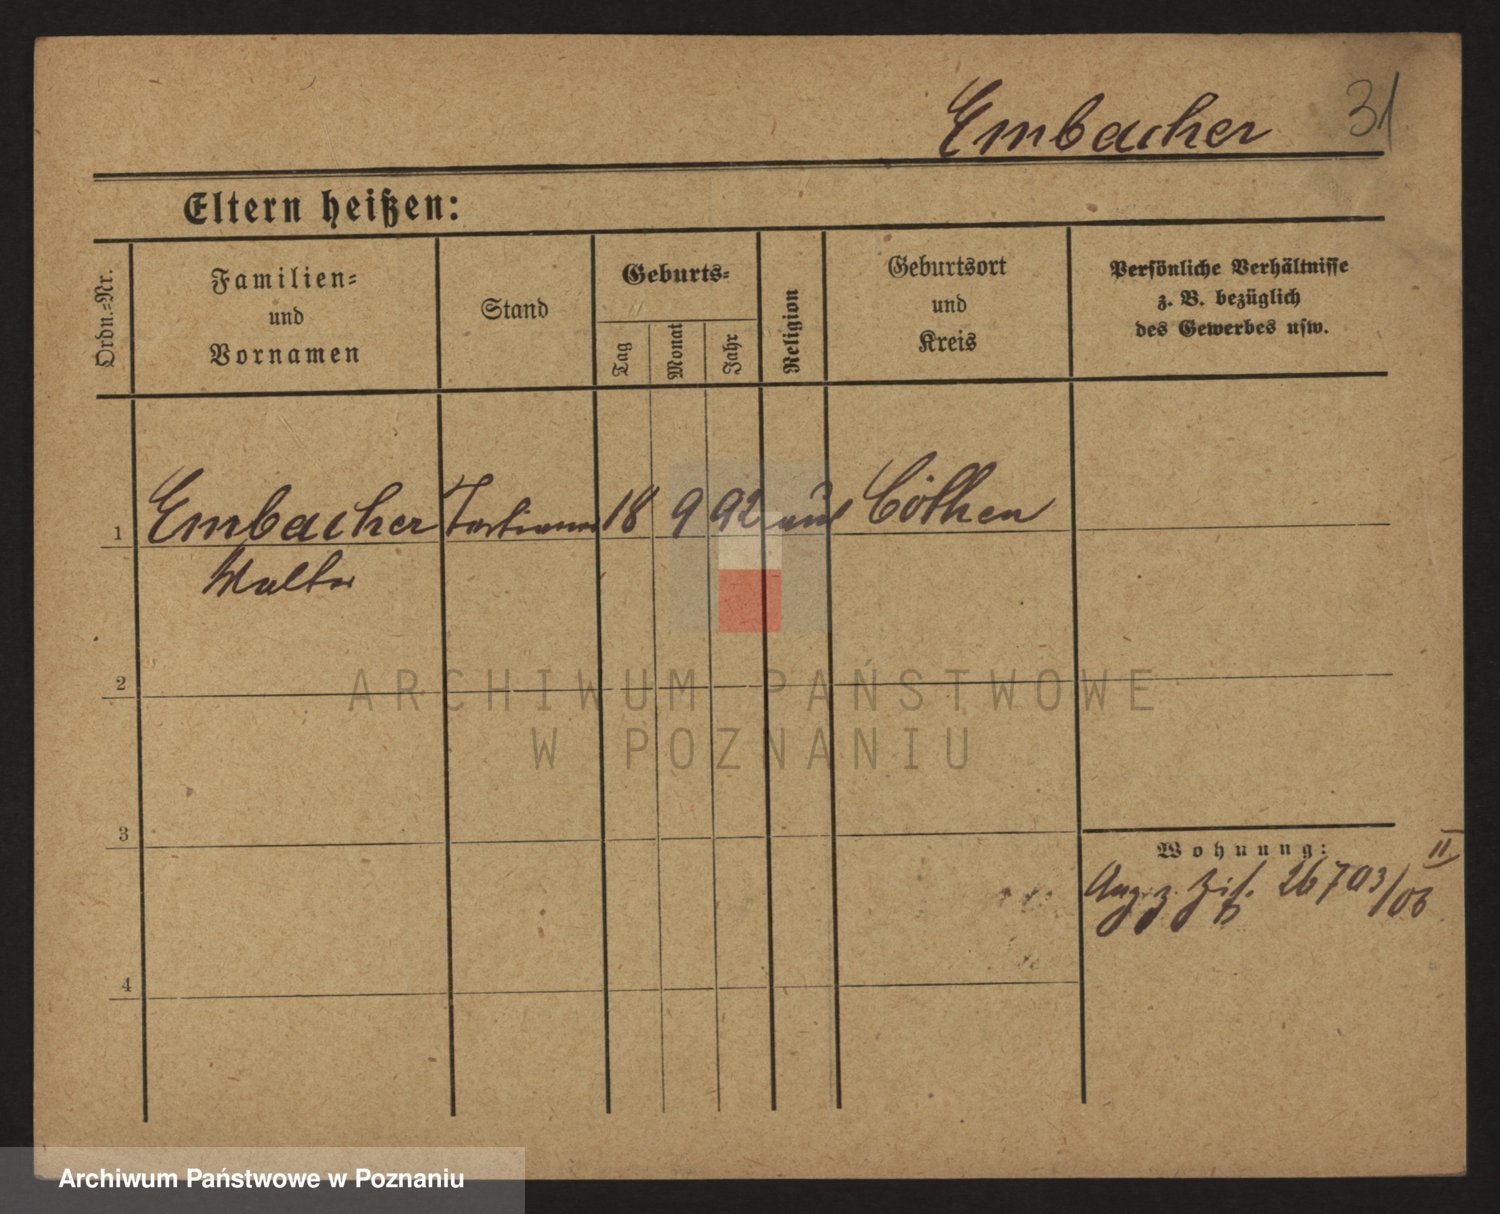 Embacher 31
Eltern heißen:
Ordn.-Nr.
Familien-
und
Vornamen
Stand
Geburts-
Tag
Monat
Jahr
Religion
Geburtsort
und
Kreis
Persönliche Verhältnisse
z. B. bezüglich
des Gewerbes usw.
1 Embacher 18 9 92 Cöthen
Walter
2
ARCHIWUM PAŃSTWOWE
W POZNANIU
3
Wohnung: II
26703/06
4
Archiwum Państwowe w Poznaniu